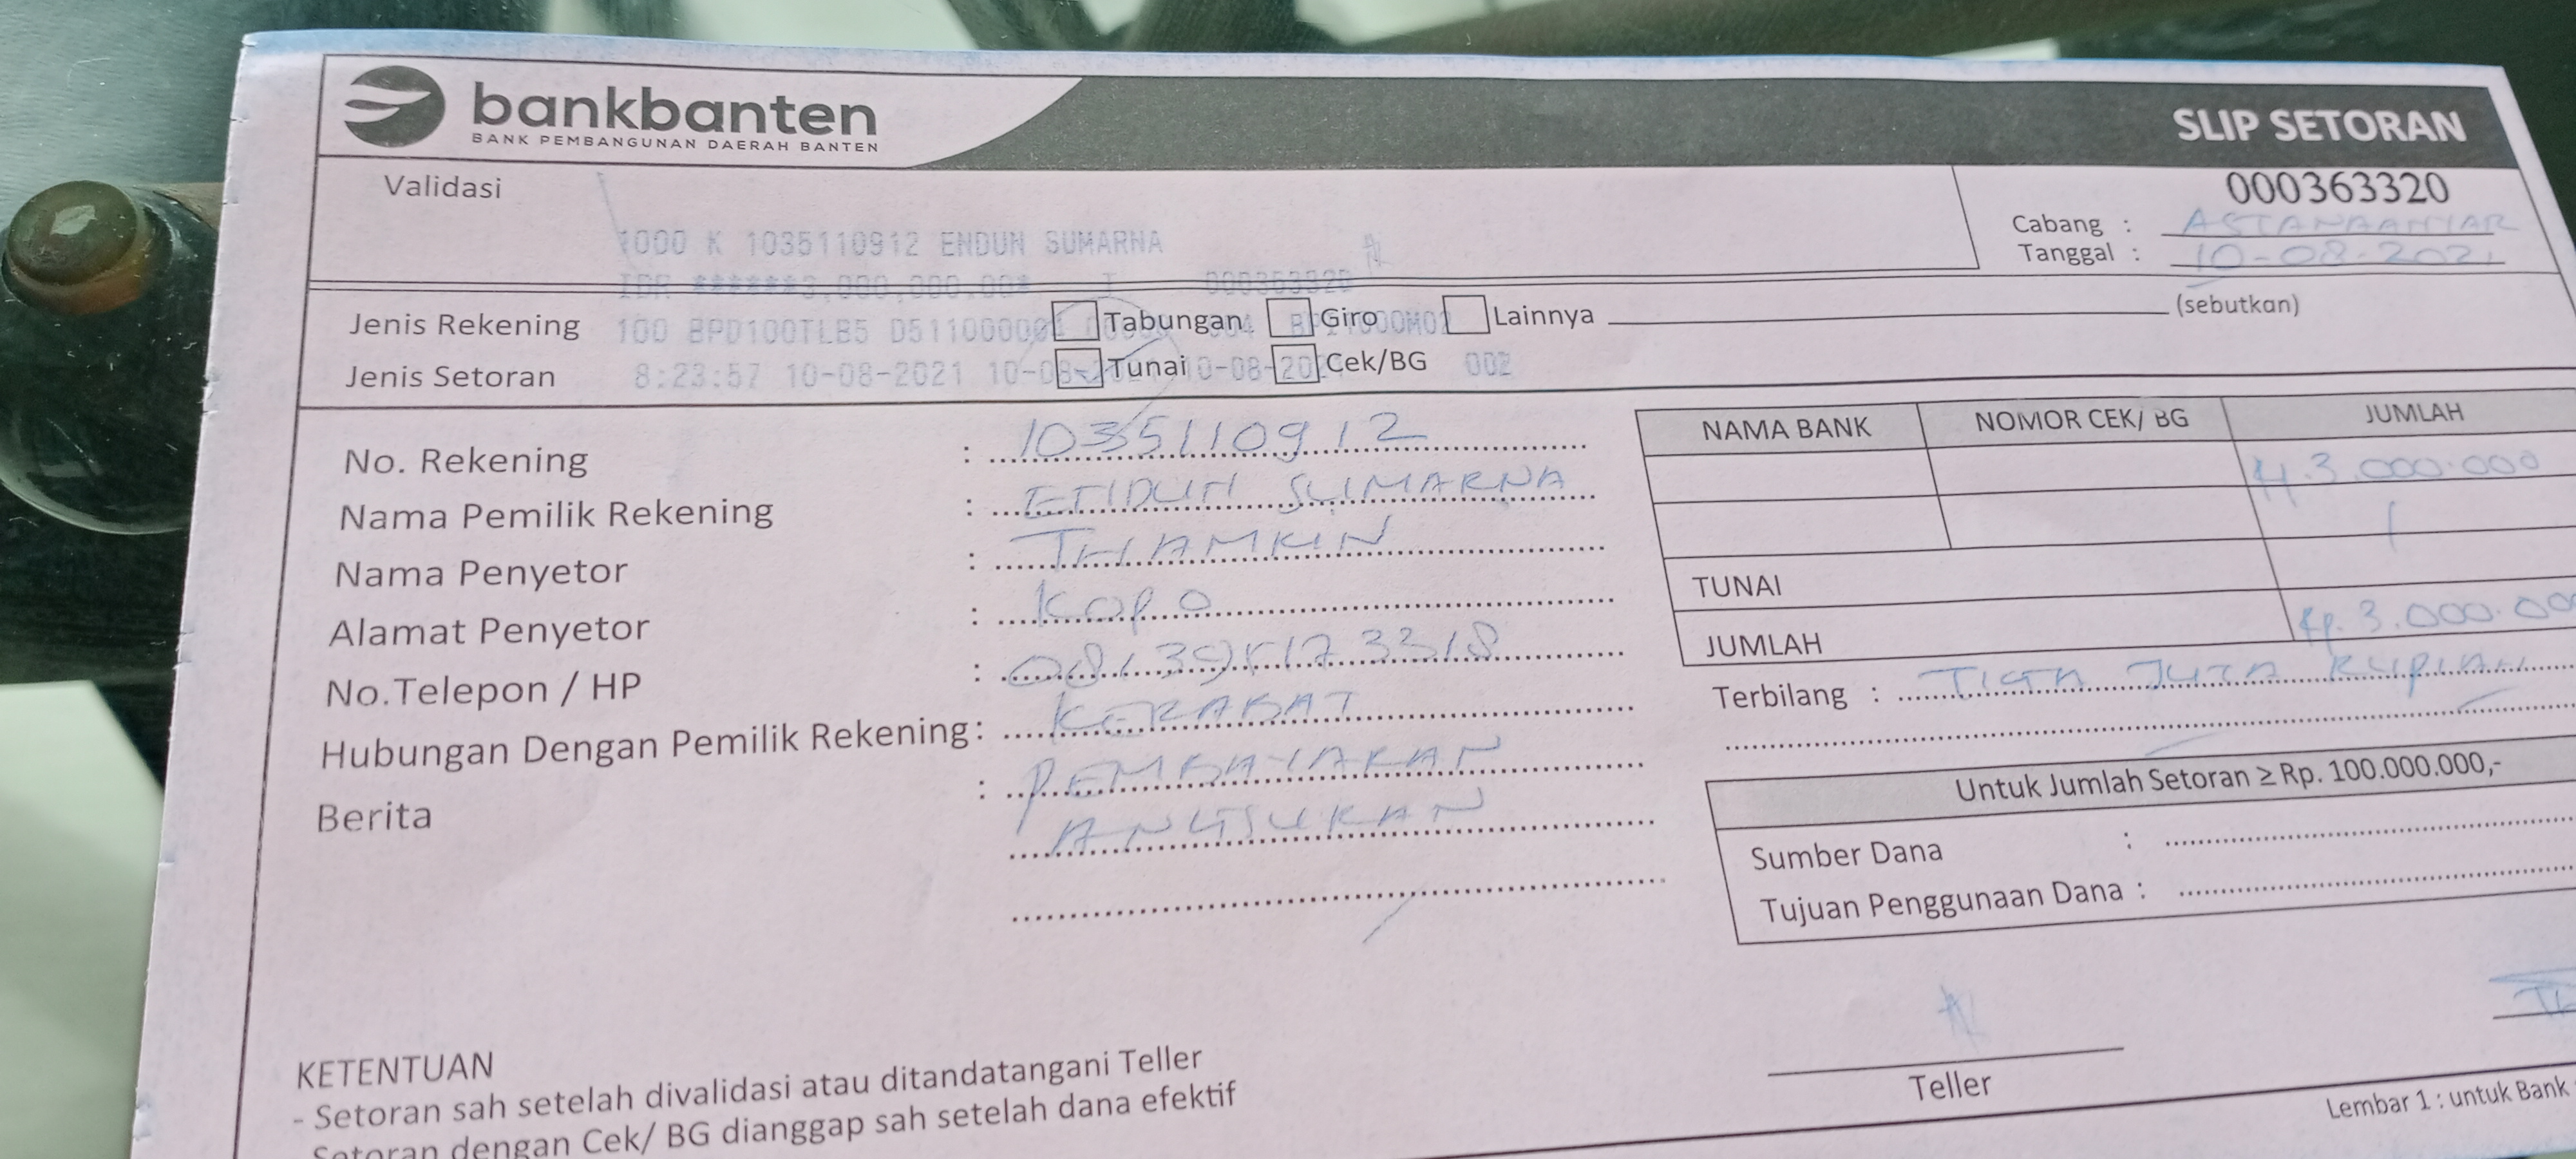 bankbanten
BANK PEMBANGUNAN DAERAH BANTEN
SLIP SETORAN
000363320
Validasi
Cabang : ASTANAANYAR
Tanggal : 10-08-2021
1000 K 1035110912 ENDUN SUMARNA
IDR ******3,000,000.00* 000363320
Jenis Rekening Tabungan Giro Lainnya (sebutkan)
100 BPD100TLB5
Jenis Setoran Tunai Cek/BG
8:23:57 10-08-2021 002
No. Rekening : 1035110912
Nama Pemilik Rekening : ENDUN SUMARNA
Nama Penyetor : THAMKIN
Alamat Penyetor : Kopo
No.Telepon / HP :
Hubungan Dengan Pemilik Rekening : KERABAT
Berita : PEMBAYARAN
ANGSURAN
NAMA BANK NOMOR CEK/ BG JUMLAH
Rp. 3.000.000
TUNAI
JUMLAH Rp. 3.000.00
Terbilang : TIGA JUTA RUPIAH
Untuk Jumlah Setoran ≥ Rp. 100.000.000,-
Sumber Dana :
Tujuan Penggunaan Dana :
Teller
KETENTUAN
- Setoran sah setelah divalidasi atau ditandatangani Teller
Setoran dengan Cek/ BG dianggap sah setelah dana efektif
Lembar 1 : untuk Bank